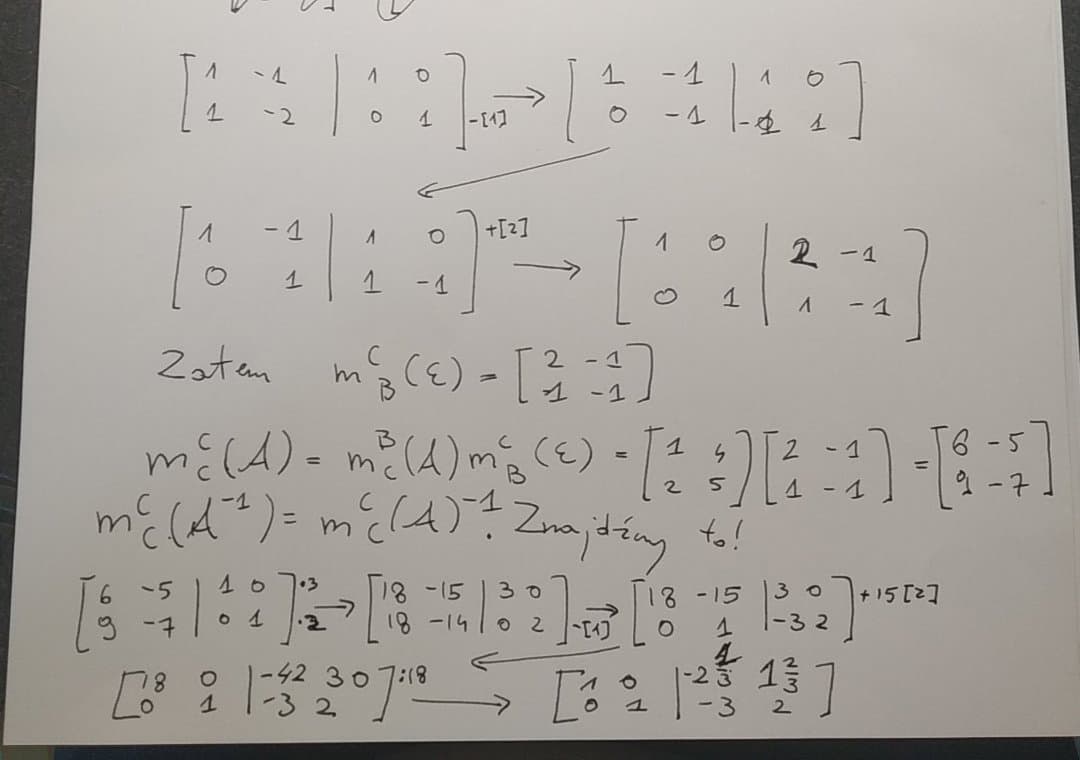 [1 -1 | 1 0; 1 -2 | 0 1] -[1] → [1 -1 | 1 0; 0 -1 | -1 1]
[1 -1 | 1 0; 0 1 | 1 -1] +[2] → [1 0 | 2 -1; 0 1 | 1 -1]
Zatem m_B^C(ε) = [2 -1; 1 -1]
m_C^C(A) = m_C^B(A) m_B^C(ε) = [1 4; 2 5] [2 -1; 1 -1] = [6 -5; 9 -7]
m_C^C(A^-1) = m_C^C(A)^-1. Znajdźmy to!
[6 -5 | 1 0; 9 -7 | 0 1] ·3 ·2 → [18 -15 | 3 0; 18 -14 | 0 2] -[1] → [18 -15 | 3 0; 0 1 | -3 2] +15[2]
[18 0 | -42 30; 0 1 | -3 2] :18 → [1 0 | -2 1/3 1 2/3; 0 1 | -3 2]